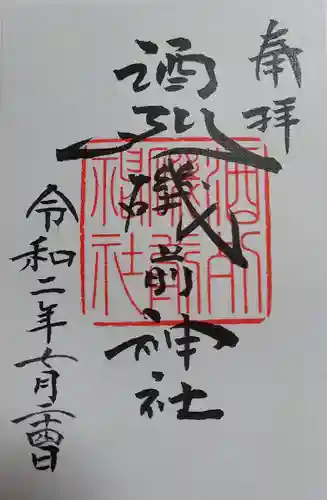 奉拝
酒列磯前神社
酒列
磯前
神社
令和二年七月二十四日